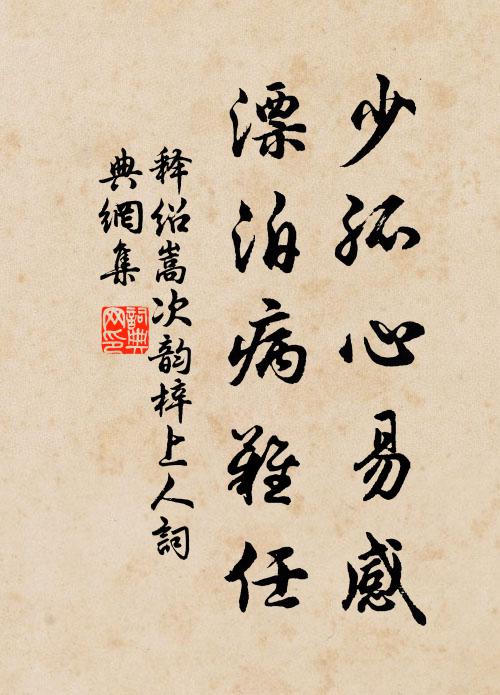 少孤心易感
漂泊病難任
释绍嵩次韵梓上人詞
典網集
詞典
网印